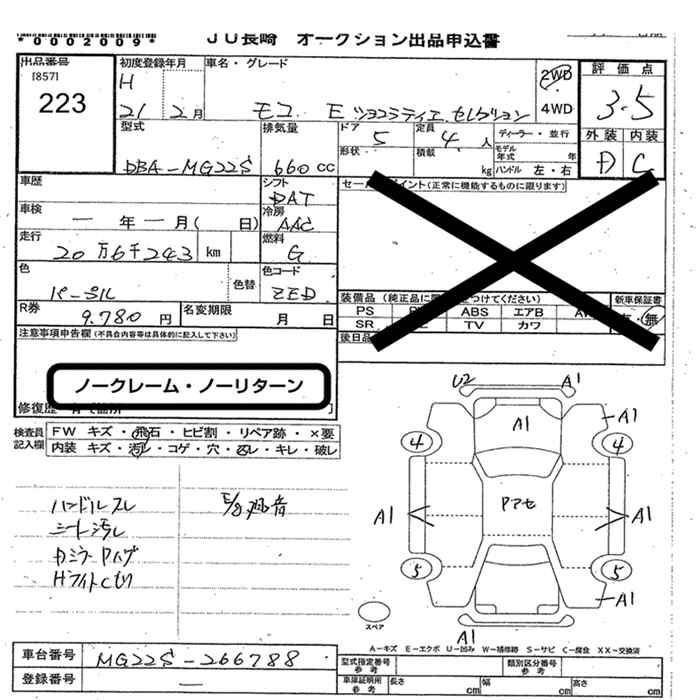 *0002009*
JU長崎 オークション出品申込書
出品番号
[857]
223
初度登録年月
H
21 2月
車名・グレード
モコ E ショコラティエ セレクション
2WD
4WD
評価点
3.5
外装 内装
D C
型式
DBA-MG22S
排気量
660cc
ドア 5
形状
定員 4人
積載 kg
ディーラー・並行
モデル年式 年
ハンドル 左・右
車歴
シフト
DAT
セールスポイント(正常に機能するものに限ります)
車検
ー年ー月( 日)
冷房
AAC
走行
20万6千243 km
燃料
G
色
パープル
色替
色コード
ZED
R券
9.780円
名変期限
月 日
装備品
PS
ABS エアB
SR
TV カワ
新車保証書
無
後日品
注意事項申告欄(不具合内容等は具体的に記入して下さい)
ノークレーム・ノーリターン
修復歴
検査員記入欄
FW キズ・飛石・ヒビ割・リペア跡・×要
内装 キズ・汚レ・コゲ・穴・凶レ・キレ・破レ
ハンドルスレ
シート汚レ
DミラーPハゲ
HライトCモリ
E/g 異音
U2 A1
A1
A1
4 4
A1
Pアセ
A1
5 5
A1
A1
スペア
A-キズ E-エクボ U-凹み W-補修跡 S-サビ C-腐食 XX-交換済
車台番号
MG22S-266788
登録番号
ー
型式指定番号
参考
類別区分番号
参考
車庫証明用
参考
長さ cm
幅 cm
高さ cm